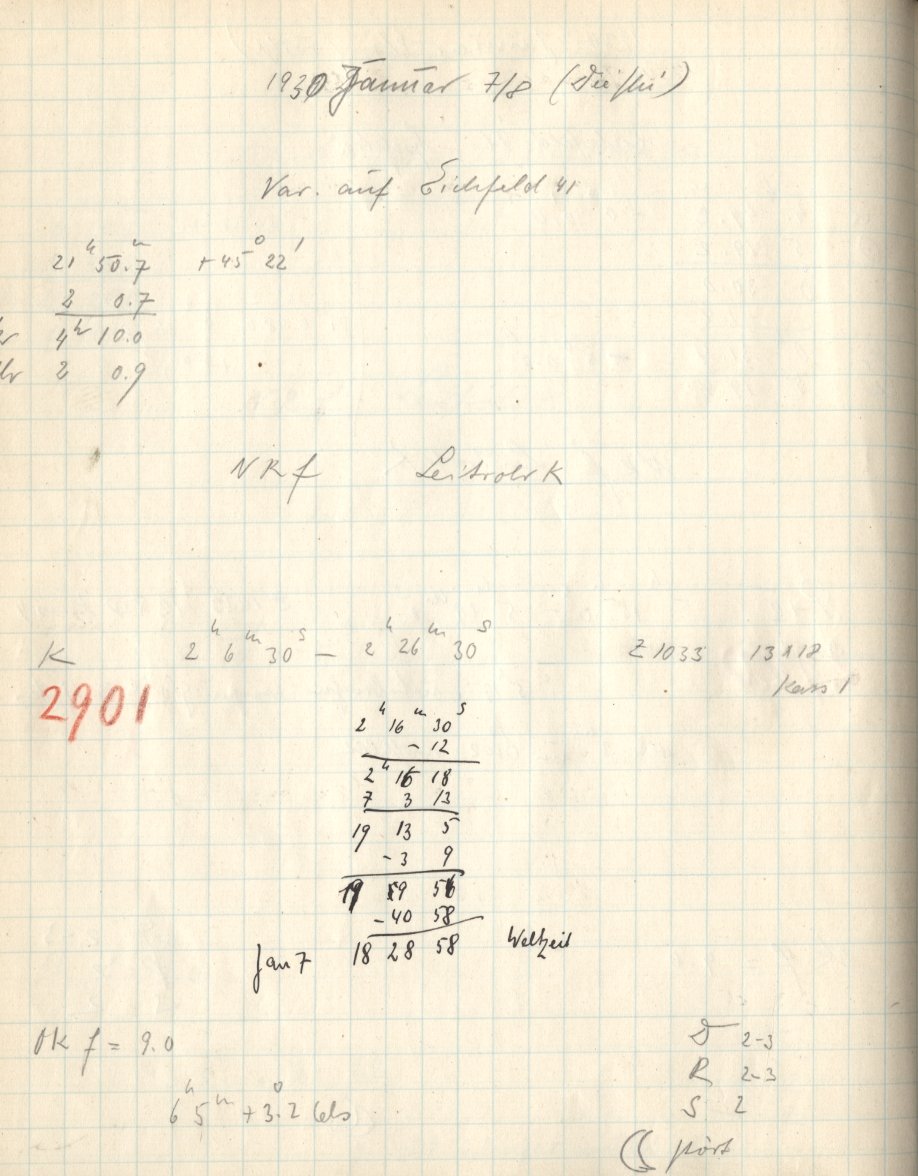 1930 Januar 7/8 (Die/Mi)
Var. auf Eichfeld 41
21ʰ 50.ᵐ7 +45° 22'
2 0.7
4ʰ 10.0
2 0.9
NKf Leitrohr K
K 2ʰ 6ᵐ 30ˢ – 2ʰ 26ᵐ 30ˢ Z 1033 13x18
Kass 1
2901
2ʰ 16ᵐ 30ˢ
- 12
2ʰ 16 18
7 3 13
19 13 5
- 3 9
19 9 56
- 40 58
Jan 7 18 28 58 Weltzeit
OK f = 9.0
D 2-3
R 2-3
6ʰ 5ᵐ +3.°2 Cels
S 2
☾ stört